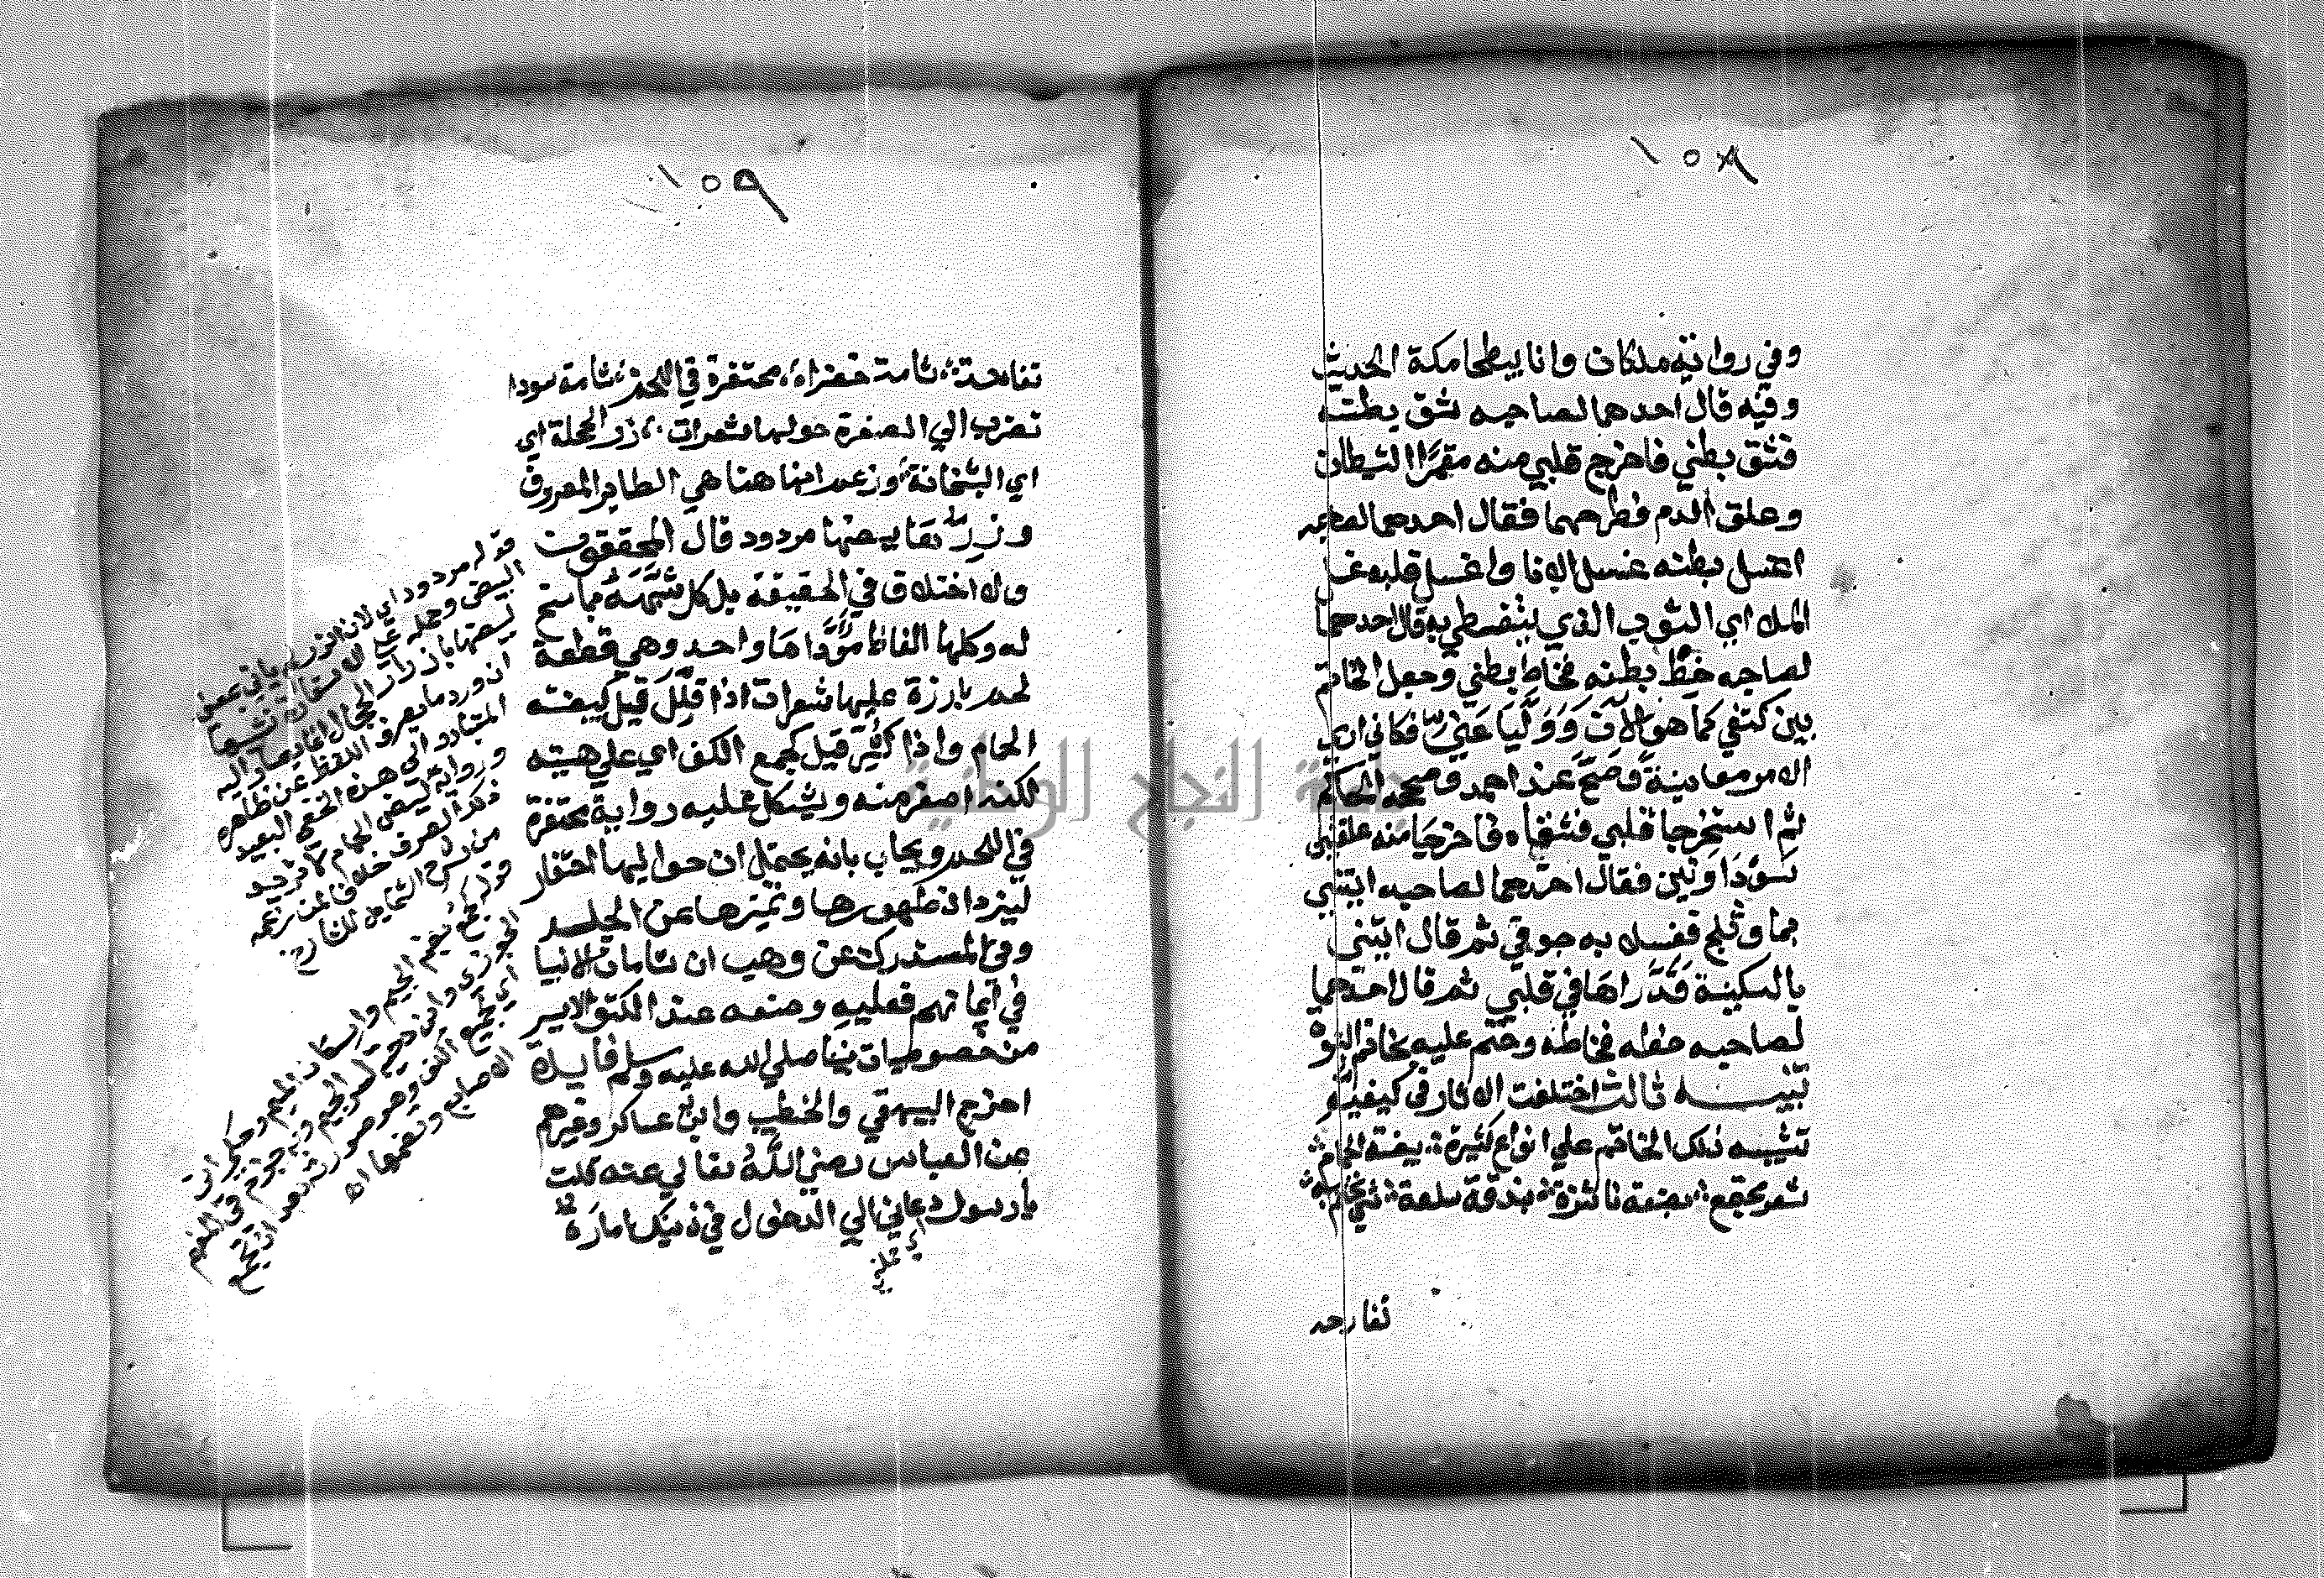 ١٥٨
وفي رواية ملكان وانا ببطحا مكة الحديث
وفيه قال احدهما لصاحبه شق بطنه
فشق بطني فاخرج قلبي منه مغمز الشيطان
وعلق الدم فطرحهما فقال احدهما لصاحبه
اغسل بطنه غسل الانا واغسل قلبه غسل
الملا اي الثوب الذي يتغطي به قال احدهما
لصاحبه خط بطنه فخاط بطني وجعل الخاتم
بين كتفي كما هو الان وَوَلَّيا عني فكاني اري
الامر معاينة وصح عند احمد وصححه الحاكم
ثم استخرجا قلبي فشقاه فاخرجا منه علقتين
سوداوتين فقال احدهما لصاحبه ايتني
بما وثلج فغسلا به جوفي ثم قال ايتني
بالسكينة فذراها في قلبي ثم قال احدهما
لصاحبه خطه فخاطه وختم عليه بخاتم النبوة
تنبيه ثالث اختلفت الاثار في كيفية
تشبيه ذلك الخاتم علي انواع كثيرة بيضة الحمام
شعر مجتمع بضعة ناشزة بندقة سلعة
تفاحه
١٥٩
تفاحة شامة خضراء محتفرة في اللحم شامة سودا
تضرب الي الصفرة حولها شعرات زر الحجلة اي
اي البشخانة وزعم انها هنا هي الطاير المعروف
وزرها بيضها مردود قال المحققون
ولا اختلاف في الحقيقة بل كل شبهه بما سنح
له وكلها الفاظ مؤداها واحد وهي قطعة
لحم بارزة عليها شعرات اذا قلل قيل كبيضة
الحمام واذا كثر قيل كجمع الكف اي علي هيئته
لكنه اصغر منه ويشكل عليه رواية محتفرة
في اللحم ويجاب بانه يحتمل ان حواليها احتفار
ليزداد ظهورها وتميزها عن الجلد
وفي المستدرك عن وهب ان شامات الانبيا
في ايمانهم فعليه وضعه عند الكتف الايسر
من خصوصيات نبينا صلي الله عليه وسلم فايدة
اخرج البيهقي والخطيب وابن عساكر وغيرهم
عن العباس رضي الله تعالي عنه قلت
يا رسول دعاني الي الدخول في دينك امارة
قوله مردود اي لان الزر لم يات بمعني
البيض وحمله علي الاستعارة تشبيها
لبيضها بازرار الحجال انما يصار اليه
ان ورد ما يصرف اللفظ عن ظاهره
المتبادر الي هذه البعيد
ورواية كبيضة الحمام لا تريد
ذلك الصرف خلافا لمن زعمه
من الشمايل للشارح
قوله كجمع بضم الجيم واسكان الميم وحكي ابن
الجوزي وابن دحية كسر الجيم وبه جزم في المفهم
اي كجمع الكف وهو صورته بعد ان تجمع
الاصابع وتضمها اه